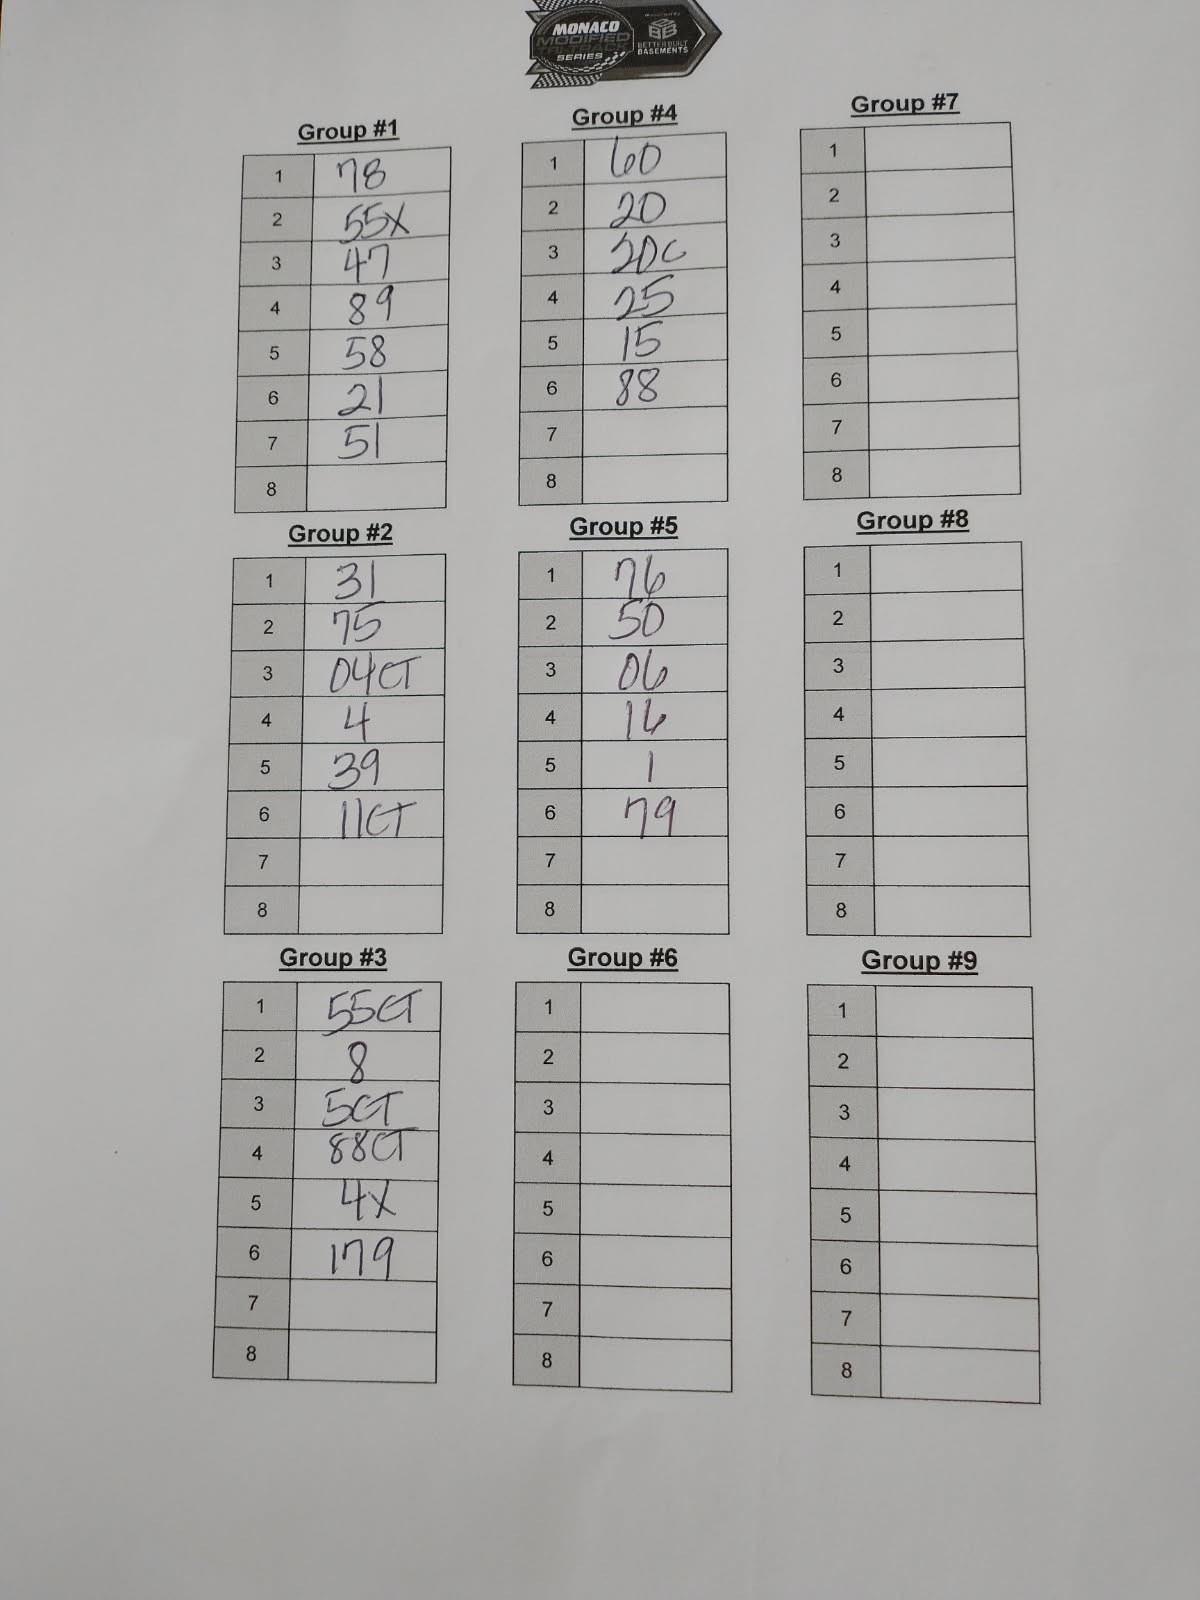 MONACO
MODIFIED
TRI-TRACK
SERIES
BETTER BUILT
BASEMENTS
Group #1
1 78
2 55X
3 47
4 89
5 58
6 21
7 51
8
Group #2
1 31
2 75
3 04CT
4 4
5 39
6 11CT
7
8
Group #3
1 55CT
2 8
3 5CT
4 88CT
5 4X
6 179
7
8
Group #4
1 60
2 20
3 20C
4 25
5 15
6 88
7
8
Group #5
1 76
2 50
3 06
4 16
5 1
6 79
7
8
Group #6
1
2
3
4
5
6
7
8
Group #7
1
2
3
4
5
6
7
8
Group #8
1
2
3
4
5
6
7
8
Group #9
1
2
3
4
5
6
7
8